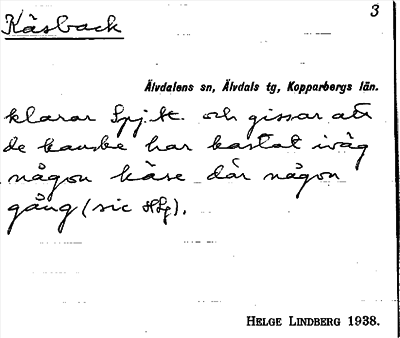 Käsback
3
Älvdalens sn, Älvdals tg, Kopparbergs län.
klarar Spj. K. och gissar att
de kanske har kastat iväg
någon käse där någon
gång (sic HLg).
HELGE LINDBERG 1938.